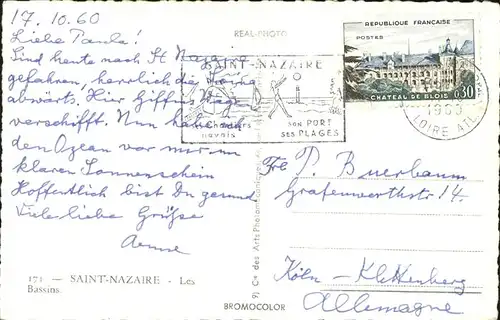 17.10.60
Liebe Paula!
Sind heute nach St Nazaire
gefahren, herrlich die Loire
abwärts. Hier
verschifft. Nun haben
den Ozean vor mir im
klaren Sonnenschein
Hoffentlich bist Du gesund
Viele liebe Grüße
Aenne
171 — SAINT-NAZAIRE - Les
Bassins
REAL-PHOTO
SAINT-NAZAIRE
Chantiers
navals
son PORT
SES PLAGES
REPUBLIQUE FRANÇAISE
POSTES
CHATEAU DE BLOIS
0,30
LOIRE ATL
BROMOCOLOR
Frl P. Buerbaum
Grafenwerthstr 14.
Köln - Klettenberg
Allemagne